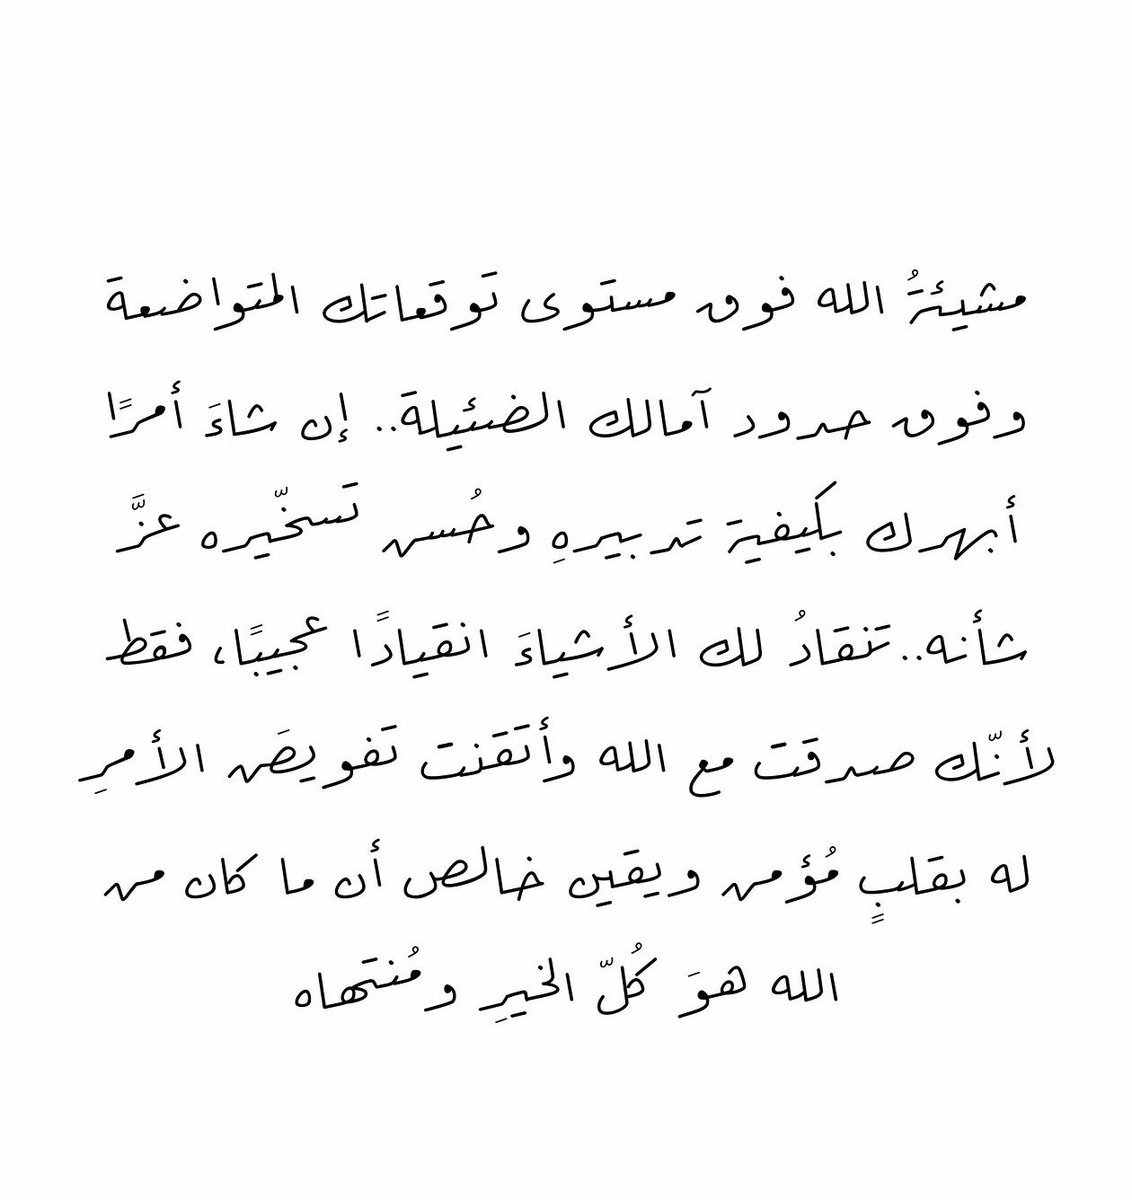 مشيئةُ الله فوق مستوى توقعاتك المتواضعة
وفوق حدود آمالك الضئيلة.. إن شاءَ أمرًا
أبهرك بكيفية تدبيرهِ وحُسن تسخّيره عزَّ
شأنه.. تنقادُ لك الأشياءَ انقيادًا عجيبًا، فقط
لأنّك صدقت مع الله وأتقنت تفويضَ الأمرِ
له بقلبٍ مُؤمن ويقين خالص أن ما كان من
الله هوَ كُلّ الخيرِ ومُنتهاه